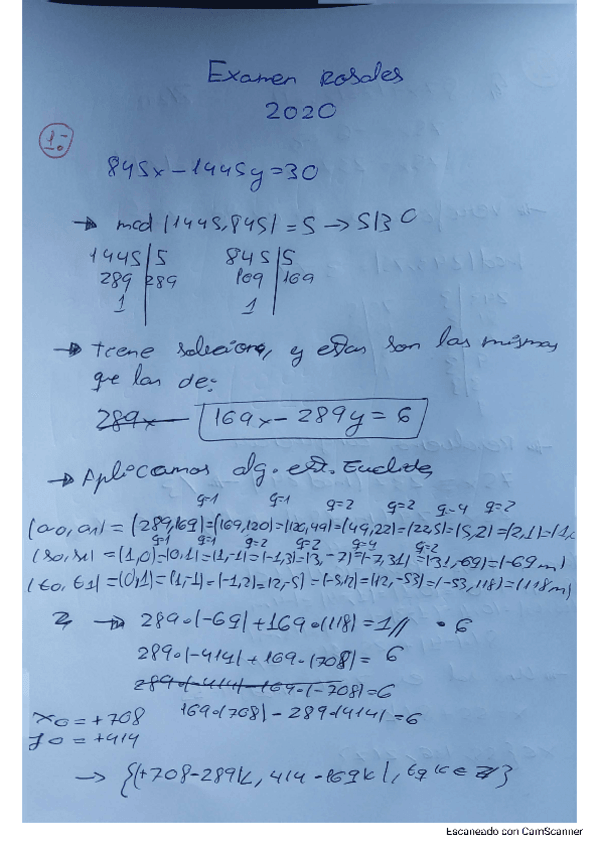 Examen Rosales
2020
1º-
845x - 1445y = 30
→ mcd (1445, 845) = 5 → 5|30
1445 | 5 845 | 5
289 | 289 169 | 169
1 1
→ tiene solución, y estas son las mismas
que las de:
289x 169x - 289y = 6
→ Aplicamos alg. ext. Euclides
q=1 q=1 q=2 q=2 q=4 q=2
(a0, a1) = (289,169) = (169,120) = (120,49) = (49,22) = (22,5) = (5,2) = (2,1) = (1,
q=1 q=1 q=2 q=2 q=4 q=2
(s0, s1) = (1,0) = (0,1) = (1,-1) = (-1,3) = (3,-7) = (-7,31) = (31,-69) = (-69,m)
(t0, t1) = (0,1) = (1,-1) = (-1,2) = (2,-5) = (-5,12) = (12,-53) = (-53,118) = (118,m)
→ 289·(-69) + 169·(118) = 1// · 6
289·(-414) + 169·(708) = 6
289·(-414) - 169·(-708) = 6
x0 = +708 169·(708) - 289·(414) = 6
y0 = +414
→ {(+708-289k, 414-169k), tq k ∈ Z}
Escaneado con CamScanner